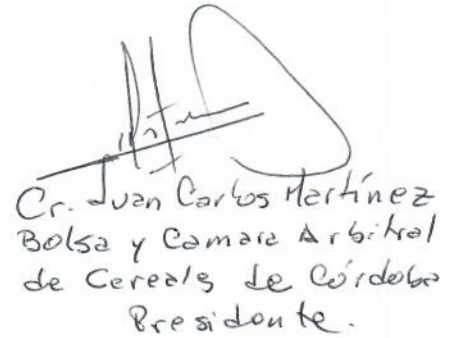 Cr. Juan Carlos Martínez
Bolsa y Camara Arbitral
de Cereals de Córdoba
Presidente.